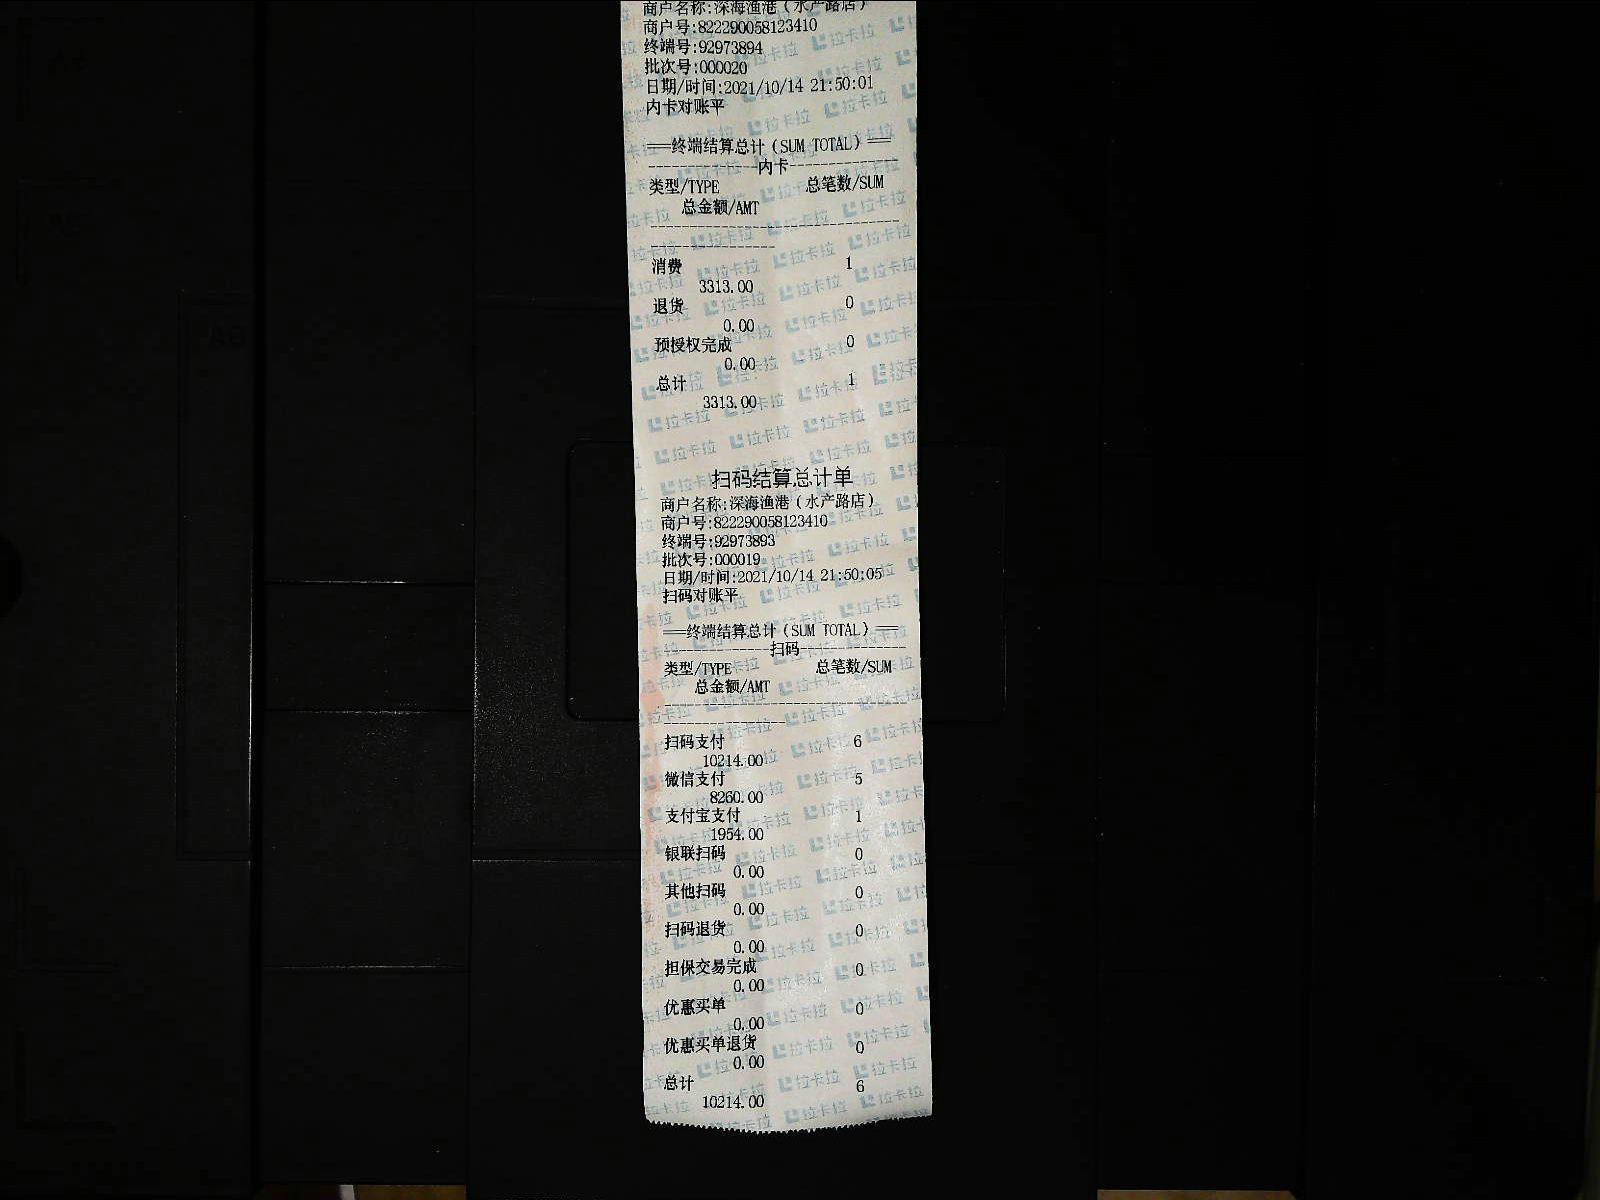 商户名称:深海渔港（水产路店）
商户号:822290058123410
终端号:92973894
批次号:000020
日期/时间:2021/10/14 21:50:01
内卡对账平
==终端结算总计（SUM TOTAL）==
--------------内卡--------------
类型/TYPE 总笔数/SUM
总金额/AMT
消费 1
3313.00
退货 0
0.00
预授权完成 0
0.00
总计 1
3313.00
扫码结算总计单
商户名称:深海渔港（水产路店）
商户号:822290058123410
终端号:92973893
批次号:000019
日期/时间:2021/10/14 21:50:05
扫码对账平
==终端结算总计（SUM TOTAL）==
--------------扫码--------------
类型/TYPE 总笔数/SUM
总金额/AMT
扫码支付 6
10214.00
微信支付 5
8260.00
支付宝支付 1
1954.00
银联扫码 0
0.00
其他扫码 0
0.00
扫码退货 0
0.00
担保交易完成 0
0.00
优惠买单 0
0.00
优惠买单退货 0
0.00
总计 6
10214.00